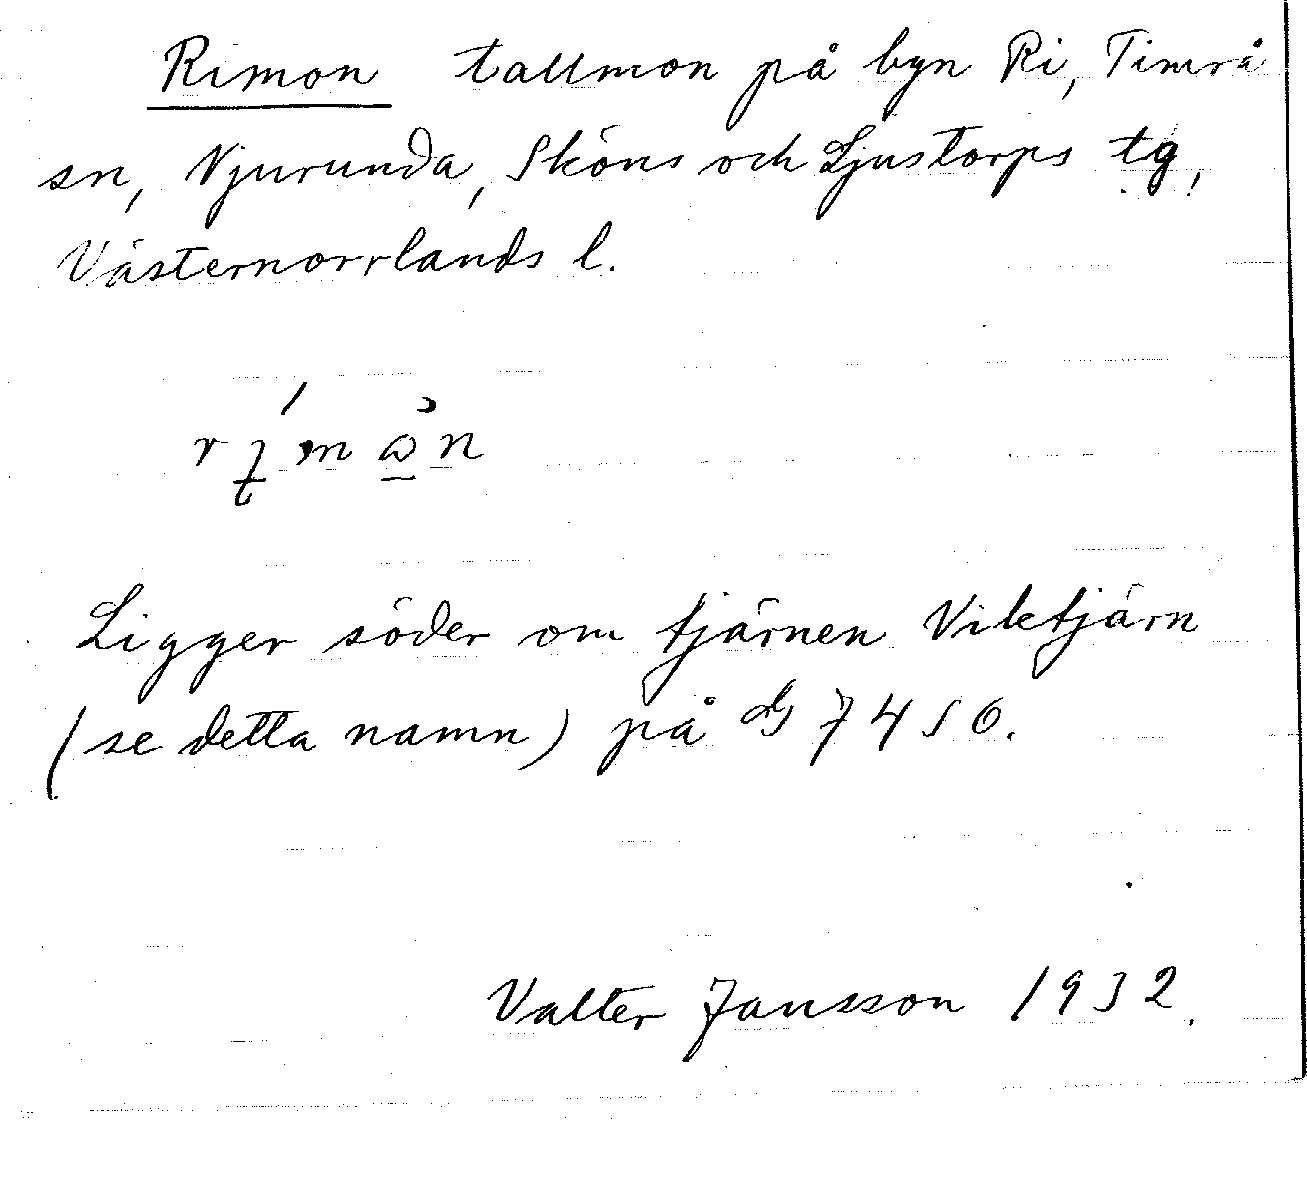 Rimon tallmon på byn Ri, Timrå
sn, Njurunda, Sköns och Ljustorps tg,
Västernorrlands l.
Ligger söder om tjärnen Viktjärn
(se detta namn) på db 7450.
Valter Jansson 1932.